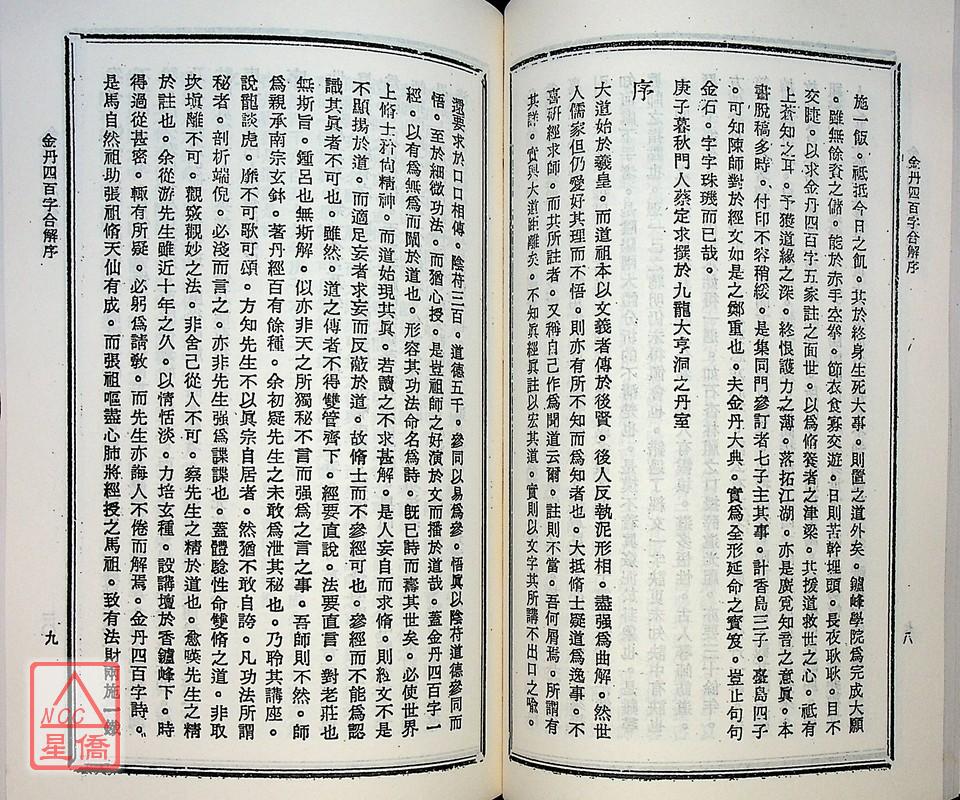 金丹四百字合解序
八
施一飯。祗抵今日之飢。其於終身生死大事。則置之道外矣。鑪峰學院為完成大願
。雖無餘資之儲。能於赤手空拳。節衣食寡交遊。日則苦幹埋頭。長夜耿耿。目不
交睫。以求金丹四百字五家註之面世。以為脩養者之津梁。共拔道救世之心。祗有
上蒼知之耳。予獲道緣之深。終恨護力之薄。落拓江湖。亦是廣覓知音之意眞。本
書脫稿多時。付印不容稍綏。是集同門參訂者七子主其事。計香島三子。臺島四子
。可知陳師對於經文如是之鄭重也。夫金丹大典。實為全形延命之寶笈。豈止句句
金石。字字珠璣而已哉。
庚子暮秋門人蔡定求撰於九龍大亨洞之丹室
序
大道始於羲皇。而道祖本以文義者傳於後賢。後人反執泥形相。盡强為曲解。然世
人儒家但仍愛好其理而不悟。則亦有所不知而為知者也。大抵脩士疑道為逸事。不
喜研經求師。而其所註者。又稱自己作為聞道云爾。註則不當。吾何屑焉。所謂有
其詳。實與大道距離矣。不知眞經眞註以宏其道。實則以文字共所講不出口之喩。
還要求於口口相傳。陰苻三百。道德五千。參同以易為參。悟眞以陰苻道德參同而
悟。至於細微功法。而猶心授。是豈祖師之好演於文而播於道哉。蓋金丹四百字一
經。以有為無為而闡於道也。形容其功法命名為詩。旣已詩而壽其世矣。必使世界
上脩士矜尙精神。而道始現其眞。若讀之不求甚解。是人妄自而求脩。則經文不是
不顯揚於道。而適足妄者求妄而反蔽於道。故脩士而不參經可也。參經而不能為認
識其眞者不可也。雖然。道之傳者不得雙管齊下。經要直說。法要直言。對老莊也
無斯旨。鍾呂也無斯解。似亦非天之所獨秘不言而强為之言之事。吾師則不然。
為親承南宗玄鉢。著丹經百有餘種。余初疑先生之未敢為泄其秘也。乃聆其講座。
說龍談虎。靡不可歌可頌。方知先生不以眞宗自居者。然猶不敢自誇。凡功法所謂
秘者。剖析端倪。必淺而言之。亦非先生強為諜諜也。蓋體騐性命雙脩之道。非取
坎塡離不可。觀竅觀妙之法。非舍己從人不可。察先生之精於道也。愈嘆先生之精
於註也。余從游先生雖近十年之久。以情恬淡。力培玄種。設講壇於香鑪峰下。時
得過從甚密。輒有所疑。必躬為請敎。而先生亦誨人不倦而解焉。金丹四百字詩。
是馬自然祖助張祖脩天仙有成。而張祖嘔盡心肺將經授之馬祖。致有法財兩施一
金丹四百字合解序
九
NCC
星僑